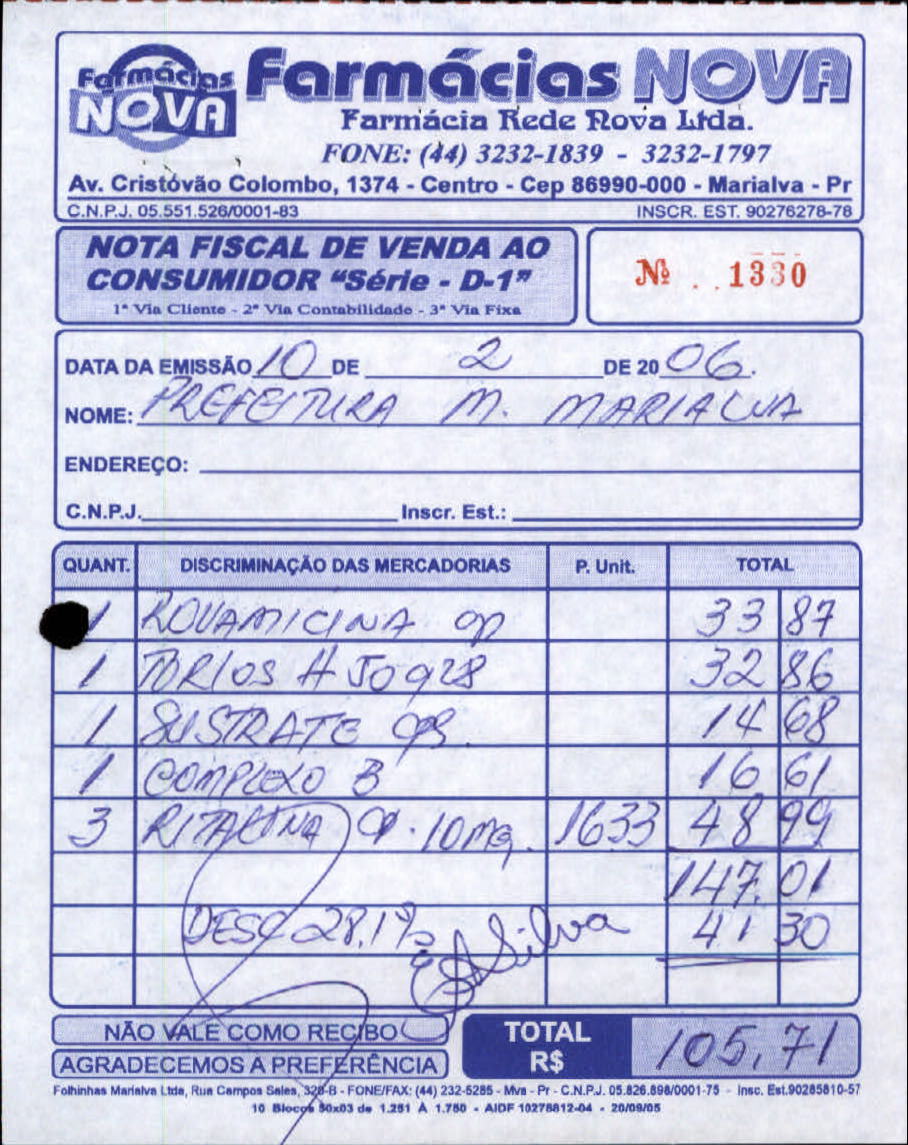 Farmácias NOVA
Farmácias NOVA
Farmácia Rede Nova Ltda.
FONE: (44) 3232-1839 - 3232-1797
Av. Cristóvão Colombo, 1374 - Centro - Cep 86990-000 - Marialva - Pr
C.N.P.J. 05.551.526/0001-83 INSCR. EST. 90276278-78
NOTA FISCAL DE VENDA AO
CONSUMIDOR "Série - D-1"
1ª Via Cliente - 2ª Via Contabilidade - 3ª Via Fixa
Nº 1330
DATA DA EMISSÃO 10 DE 2 DE 2006.
NOME: PREFEITURA M. MARIALVA
ENDEREÇO:
C.N.P.J. Inscr. Est.:
QUANT. DISCRIMINAÇÃO DAS MERCADORIAS P. Unit. TOTAL
1 ROVAMICINA cp 33 87
1 32 86
1 SUSTRATE 14 68
1 COMPLEXO B 16 61
3 RITALINA CP. 10mg. 1633 48 99
147,01
DESC 28,1% 41 30
Silva
NÃO VALE COMO RECIBO
AGRADECEMOS A PREFERÊNCIA
TOTAL
R$ 105,71
Folhinhas Marialva Ltda, Rua Campos Sales, 328-B - FONE/FAX: (44) 232-5285 - Mva - Pr - C.N.P.J. 05.826.898/0001-75 - Insc. Est.90285810-57
10 Blocos 50x03 de 1.251 À 1.750 - AIDF 10275812-04 - 20/09/05